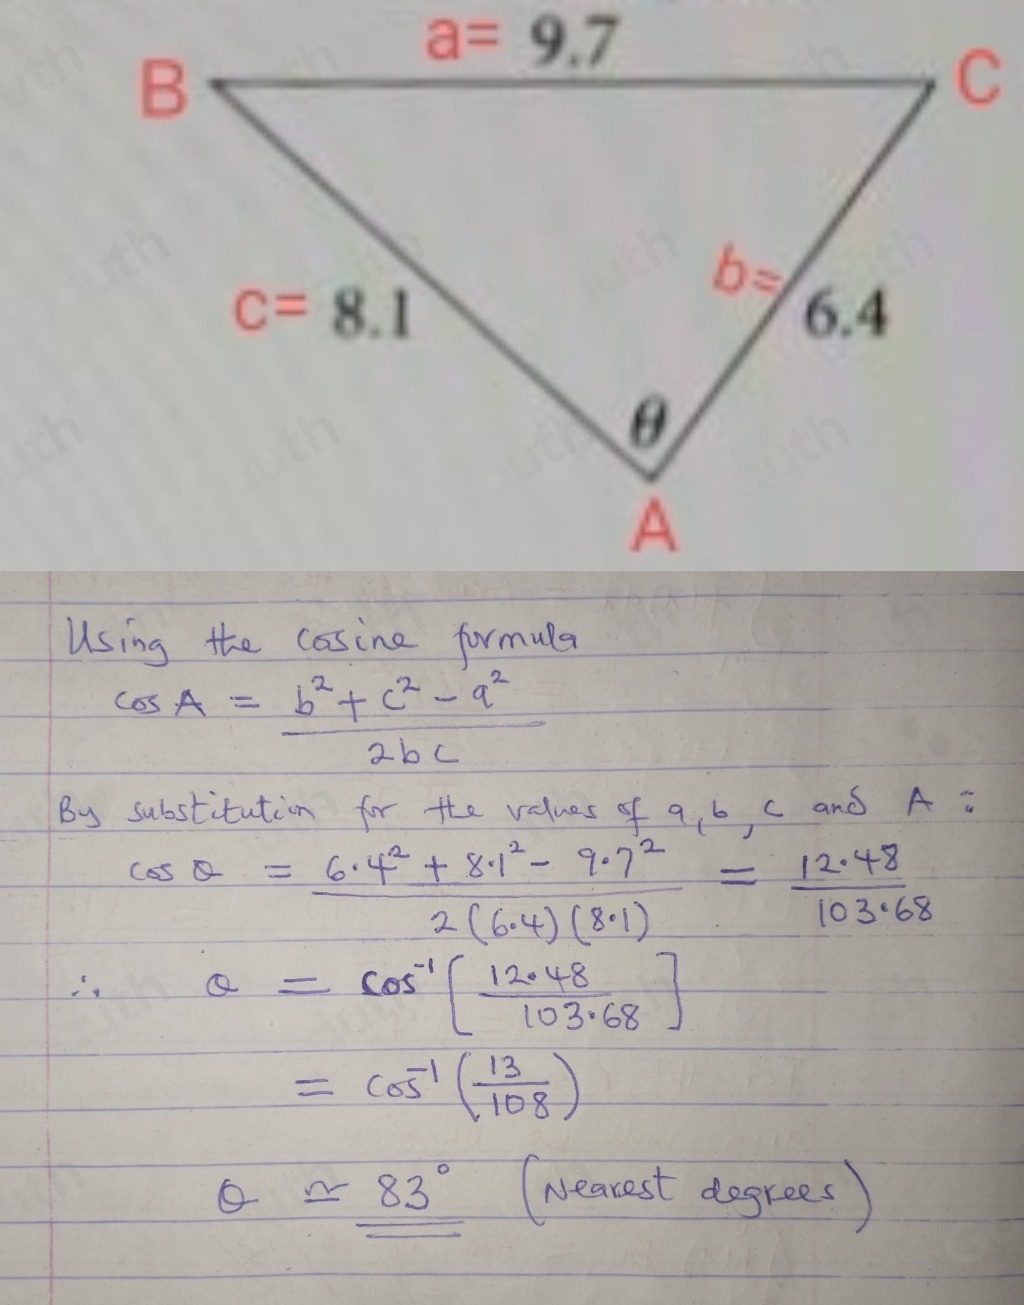 a= 9.7
B
C
c= 8.1
b= 6.4
θ
A
Using the cosine formula
cos A = b² + c² - a² / 2bc
By substitution for the values of a, b, c and A :
cos θ = 6.4² + 8.1² - 9.7² / 2(6.4)(8.1) = 12.48 / 103.68
∴ θ = cos⁻¹ [ 12.48 / 103.68 ]
= cos⁻¹ ( 13 / 108 )
θ ≃ 83° (Nearest degrees)